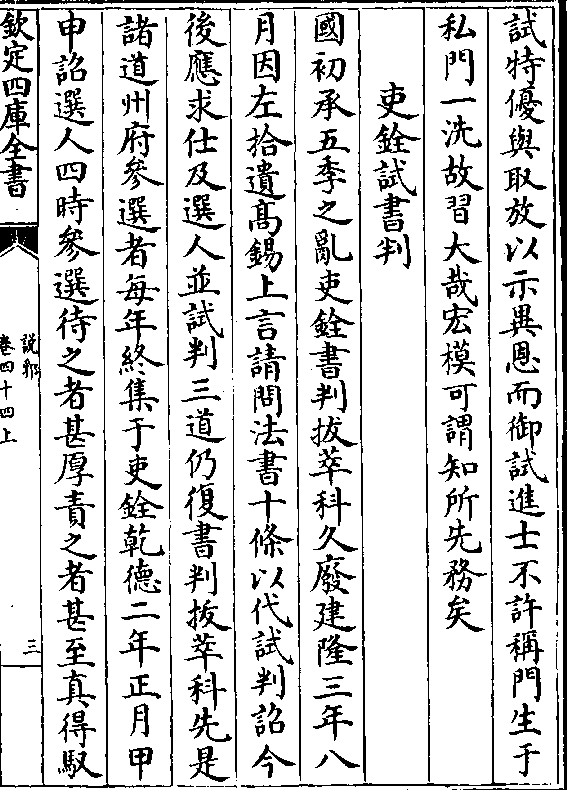 試特優與取放以示異恩而御試進士不許稱門生于
私門一洗故習大哉宏模可謂知所先務矣
吏銓試書判
國初承五季之亂吏銓書判拔萃科久廢建隆三年八
月因左拾遺髙錫上言請問法書十條以代試判詔今
後應求仕及選人並試判三道仍復書判拔萃科先是
諸道州府參選者每年終集于吏銓乾德二年正月甲
申詔選人四時參選待之者甚厚責之者甚至真得馭
欽定四庫全書
說郛
卷四十四上
三